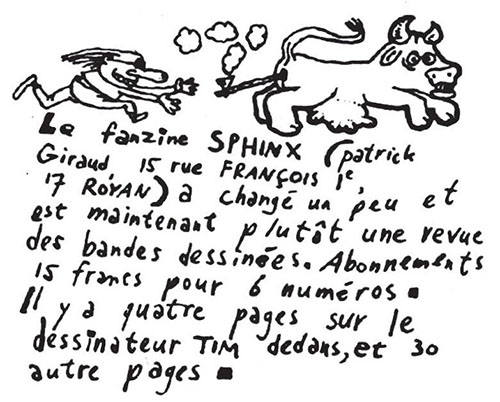 Le fanzine SPHINX (patrick
Giraud 15 rue FRANÇOIS 1e,
17 ROYAN) a changé un peu et
est maintenant plutôt une revue
des bandes dessinées. Abonnements
15 francs pour 6 numéros.
Il y a quatre pages sur le
dessinateur TIM dedans, et 30
autre pages.